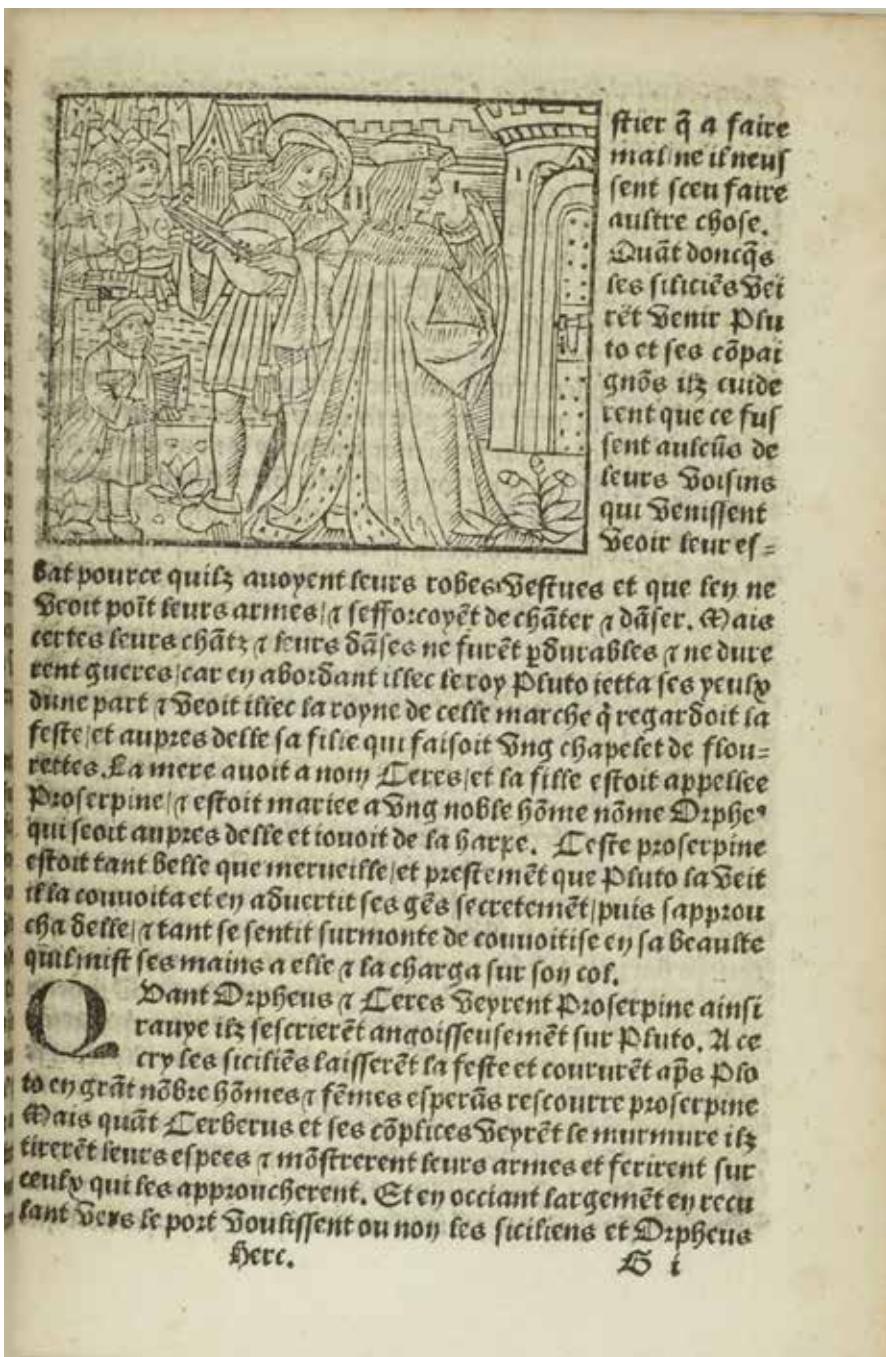 stier q̃ a faire
mal/ne il neus
sent sceu faire
aultre chose.
Quãt doncq̃s
les siliciẽs vei
rẽt venir Plu
to et ses cõpai
gnõs ilz cuide
rent que ce fus
sent aulcũs de
leurs voisins
qui venissent
veoir leur es=
bat pource quilz avoyent leurs robes vestues et que len ne
veoit poĩt leurs armes/⁊ sefforcoyẽt de chãter ⁊ dãser. Mais
certes leurs chãtz ⁊ leurs dãses ne furẽt ꝑdurables ⁊ ne dure
rent gueres/car en abordant illec le roy Pluto ietta ses yeulx
dune part ⁊ veoit illec la royne de celle marche q̃ regardoit la
feste/et aupres delle sa fille qui faisoit ung chapelet de flou=
rettes. La mere avoit a nom Ceres/et la fille estoit appellee
Proserpine/⁊ estoit mariee a ung noble hõme nõme Orpheꝰ
qui seoit aupres delle et iouoit de la harpe. Ceste proserpine
estoit tant belle que merveille/et prestemẽt que Pluto la veit
il la convoita et en advertit ses gẽs secretemẽt/puis sapprou
cha delle/⁊ tant se sentit surmonte de convoitise en sa beaulte
quil mist ses mains a elle ⁊ la charga sur son col.
Quant Orpheus ⁊ Ceres veyrent Proserpine ainsi
ravye ilz sescrierẽt angoisseusemẽt sur Pluto. A ce
cry les siciliẽs laisserẽt la feste et coururẽt ap̃s Plo
to en grãt nõbre hõmes ⁊ fẽmes esperãs rescourre proserpine
Mais quãt Cerberus et ses cõplices veyrẽt le murmure ilz
tirerẽt leurs espees ⁊ mõstrerent leurs armes et ferirent sur
ceulx qui les approucherent. Et en occiant largemẽt en recu
lant vers le port voulissent ou non les siciliens et Orpheus
Herc. G i